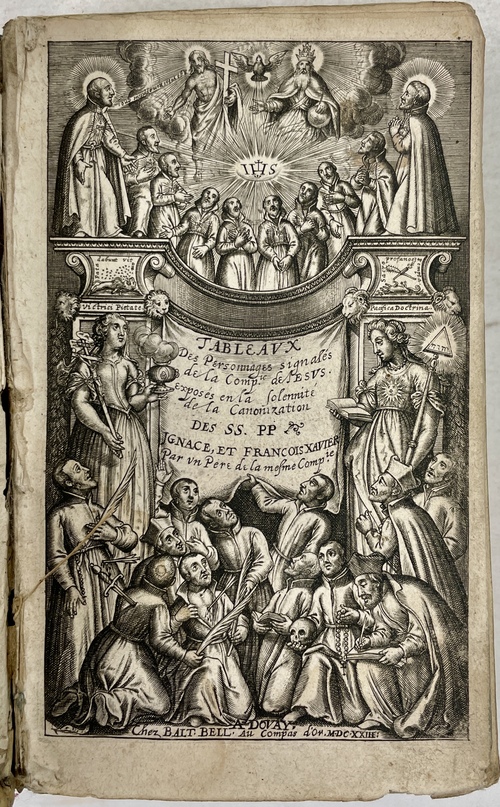 IHS
labuut vir
profanos
Victrici Pietate
Pacifica Doctrina
TABLEAUX
Des Personnages signalés
de la Comp.ie de IESVS.
exposés en la solennité
de la Canonization
DES SS. PP
IGNACE, ET FRANCOIS XAVIER
Par vn Pere de la mesme Comp.ie
A DOVAY.
Chez BALT. BELL. Au Compas d'Or. M.DC.XXIII.